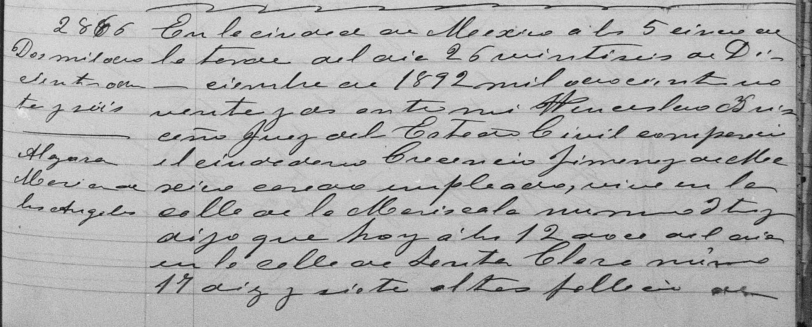 2866
Dos mil ocho
cientos sesen
ta y seis
Algara
Maria de
los Angeles
En la ciudad de Mexico á las 5 cinco de
la tarde del dia 26 veintiseis de Di-
ciembre de 1892 mil ochocientos no
venta y dos ante mi Wenceslao Bris
eño Juez del Estado Civil comparecio
el ciudadano Crecencio Jimenez de Me
xico casado empleado, vive en la
calle de la Mariscala numero 3 tres y
dijo que hoy á las 12 doce del dia
en la calle de Santa Clara número
17 diez y siete altos fallecio de